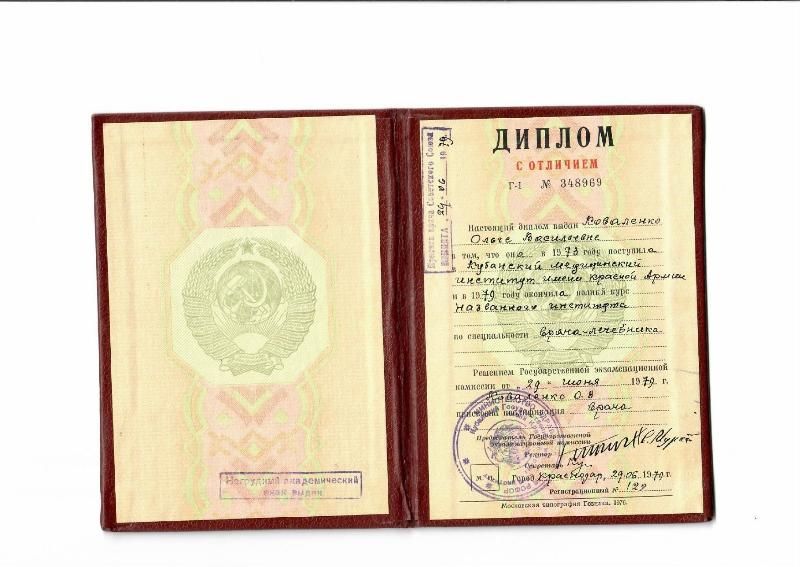 Нагрудный академический
знак выдан
Присяга врача Советского Союза
ПРИНЯТА 29 - 06 1979
ДИПЛОМ
С ОТЛИЧИЕМ
Г-I № 348969
Настоящий диплом выдан Коваленко
Ольге Васильевне
в том, что она в 1973 году поступила
в Кубанский медицинский
институт имени Красной Армии
и в 1979 году окончила полный курс
названного института
по специальности врача-лечебника
Решением Государственной экзаменационной
комиссии от „29“ июня 1979 г.
Коваленко О.В
присвоена квалификация врача
Председатель Государственной
экзаменационной комиссии
Ректор
Секретарь
М. П.
Город Краснодар, 29.06 1979 г.
Регистрационный № 129
Московская типография Гознака. 1976.